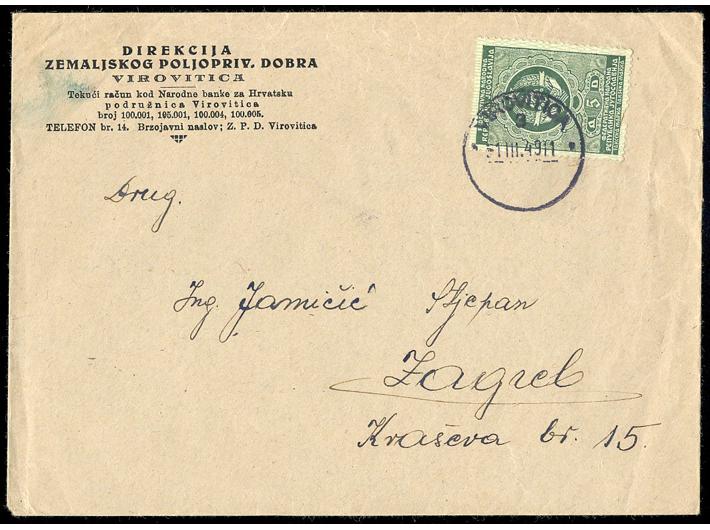 DIREKCIJA
ZEMALJSKOG POLJOPRIV. DOBRA
VIROVITICA
Tekući račun kod Narodne banke za Hrvatsku
podružnica Virovitica
broj 100.001, 105.001, 100.004, 100.005.
TELEFON br. 14. Brzojavni naslov; Z. P. D. Virovitica
VIROVITICA
Drug.
Ing. Jamičić Stjepan
Zagreb
Kraševa br. 15.